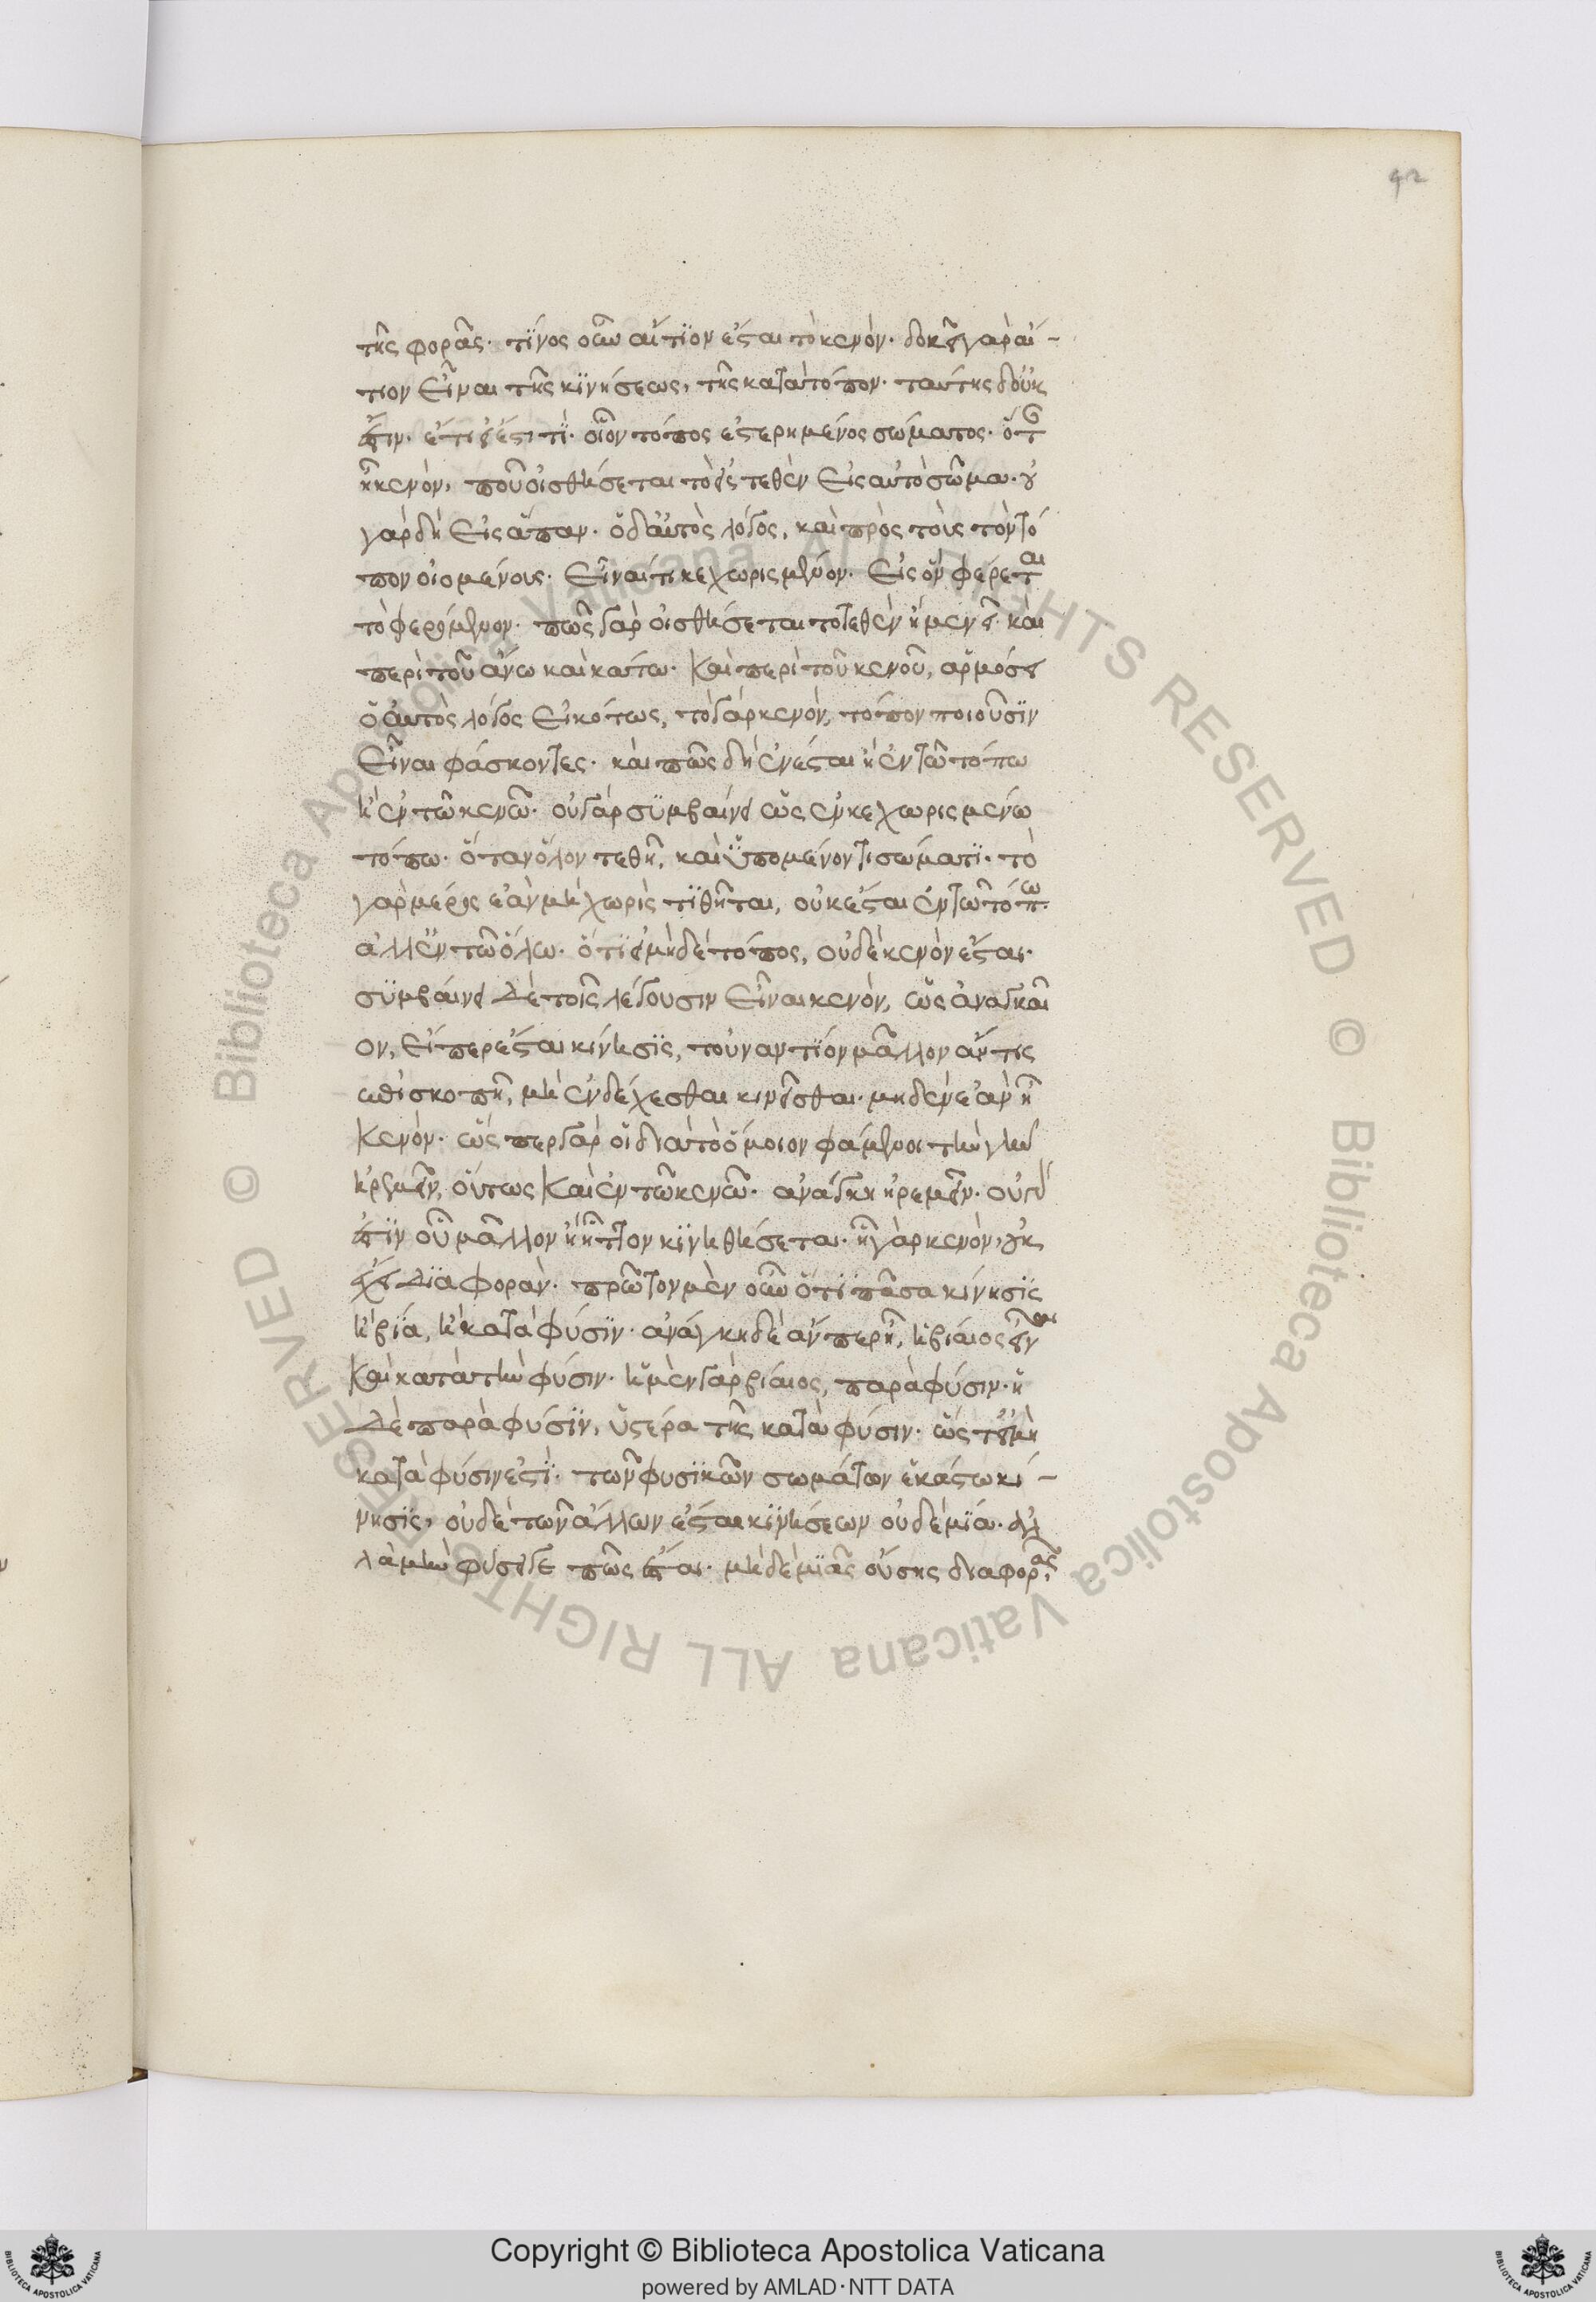 42
τῆς φορᾶς. τίνος οὖν αἴτιον ἔσται τὸ κενόν. δοκεῖ γὰρ αἴ-
τιον εἶναι τῆς κινήσεως, τῆς κατὰ τόπον. ταύτης δ' οὐκ
ἔστιν. ἔτι εἰ ἔστι τὶ οἷον τόπος ἐστερημένος σώματος. ὅταν
ᾖ κενόν, ποῦ οἰσθήσεται τὸ εἰστεθὲν εἰς αὐτὸ σῶμα. οὐ
γὰρ δὴ εἰς ἅπαν. ὁ δ' αὐτὸς λόγος, καὶ πρὸς τοὺς τὸν τό
πον οἰομένους. εἶναί τι κεχωρισμένον. εἰς ὃν φέρεται
τὸ φερόμενον. πῶς γὰρ οἰσθήσεται τὸ τεθὲν ἢ μενεῖ. καὶ
περὶ τοῦ ἄνω καὶ κάτω. καὶ περὶ τοῦ κενοῦ, ἁρμόσει
ὁ αὐτὸς λόγος εἰκότως, τὸ γὰρ κενόν, τόπον ποιοῦσιν
εἶναι φάσκοντες. καὶ πῶς δὴ ἐνέσται ἢ ἐν τῶ τόπω
ἢ ἐν τῶ κενῶ. οὐ γὰρ συμβαίνει ὡς ἐν κεχωρισμένω
τόπω. ὅταν ὅλον τεθῆ, καὶ ὑπομένοντι σώματι. τὸ
γὰρ μέρος ἐὰν μὴ χωρὶς τιθῆται, οὐκ ἔσται ἐν τῶ τόπω.
ἀλλ' ἐν τῶ ὅλω. ὅτι εἰ μηδὲ τόπος, οὐδὲ κενὸν ἔσται.
συμβαίνει δὲ τοῖς λέγουσιν εἶναι κενόν, ὡς ἀναγκαῖ
ον, εἴπερ ἔσται κίνησις, τοὐναντίον μᾶλλον ἄν τις
ἐπισκοπῆ, μὴ ἐνδέχεσθαι κινεῖσθαι. μηδὲν ἐὰν ἦ
κενόν. ὥσπερ γὰρ οἱ διὰ τὸ ὅμοιον φάμενοι τὴν γῆν
ἠρεμεῖν, οὕτως καὶ ἐν τῶ κενῶ. ἀνάγκη ἠρεμεῖν. οὐ γὰρ
ἔστιν οὗ μᾶλλον ἢ ἧττον κινηθήσεται. ἧ γὰρ κενόν, οὐκ
ἔχει διαφοράν. πρῶτον μὲν οὖν ὅτι πᾶσα κίνησις
ἢ βία, ἢ κατὰ φύσιν. ἀνάγκη δὲ ἄν περ ἦ, ἡ βίαιος εἶναι
καὶ κατὰ τὴν φύσιν. ἡ μὲν γὰρ βίαιος, παρὰ φύσιν. ἡ
δὲ παρὰ φύσιν, ὑστέρα τῆς κατὰ φύσιν. ὥστ' εἰ μὴ
κατὰ φύσιν ἐστί. τῶν φυσικῶν σωμάτων ἑκάστω κί-
νησις, οὐδὲ τῶν ἄλλων ἔσται κινήσεων οὐδεμία. ἀλ
λὰ μὴν φύσει γε πῶς ἔσται. μηδεμιᾶς οὔσης διαφορᾶς,
© Biblioteca Apostolica Vaticana ALL RIGHTS RESERVED © Biblioteca Apostolica Vaticana ALL RIGHTS RESERVED
Copyright © Biblioteca Apostolica Vaticana
powered by AMLAD·NTT DATA